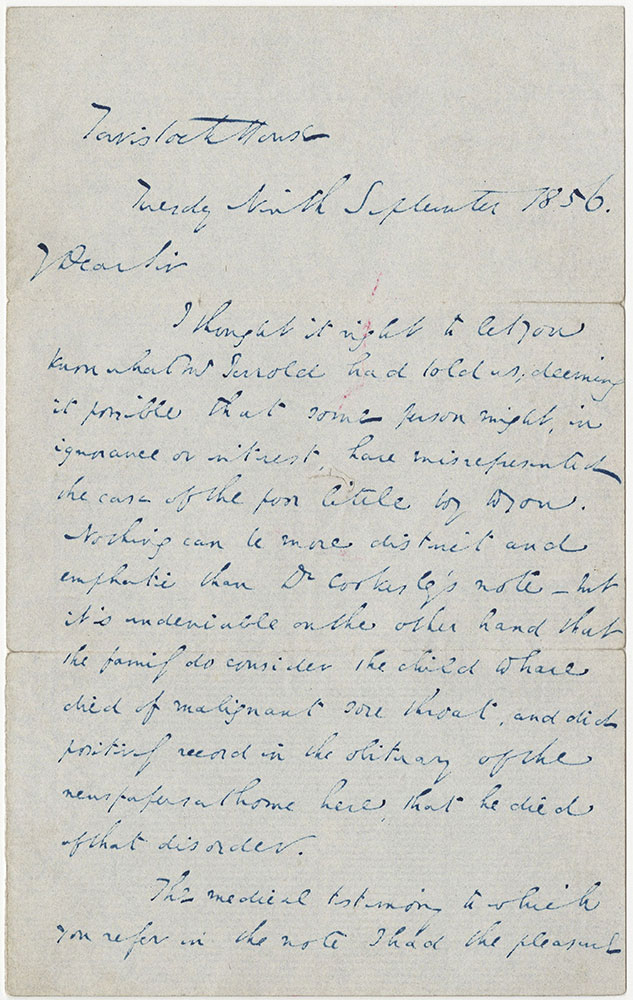 Tavistock House
Tuesday Ninth September 1856.
Dear Sir
I thought it right to let you
know what Mr Jerrold had told us; deeming
it possible that some person might, in
ignorance or interest, have misrepresented
the case of the poor little boy to you.
Nothing can be more distinct and
emphatic than Dr Cookesley's note – but
it is undeniable on the other hand that
the family do consider the child to have
died of malignant sore throat, and did
positively record in the obituary of the
newspapers at home here, that he died
of that disorder.
The medical testimony to which
you refer in the note I had the pleasure